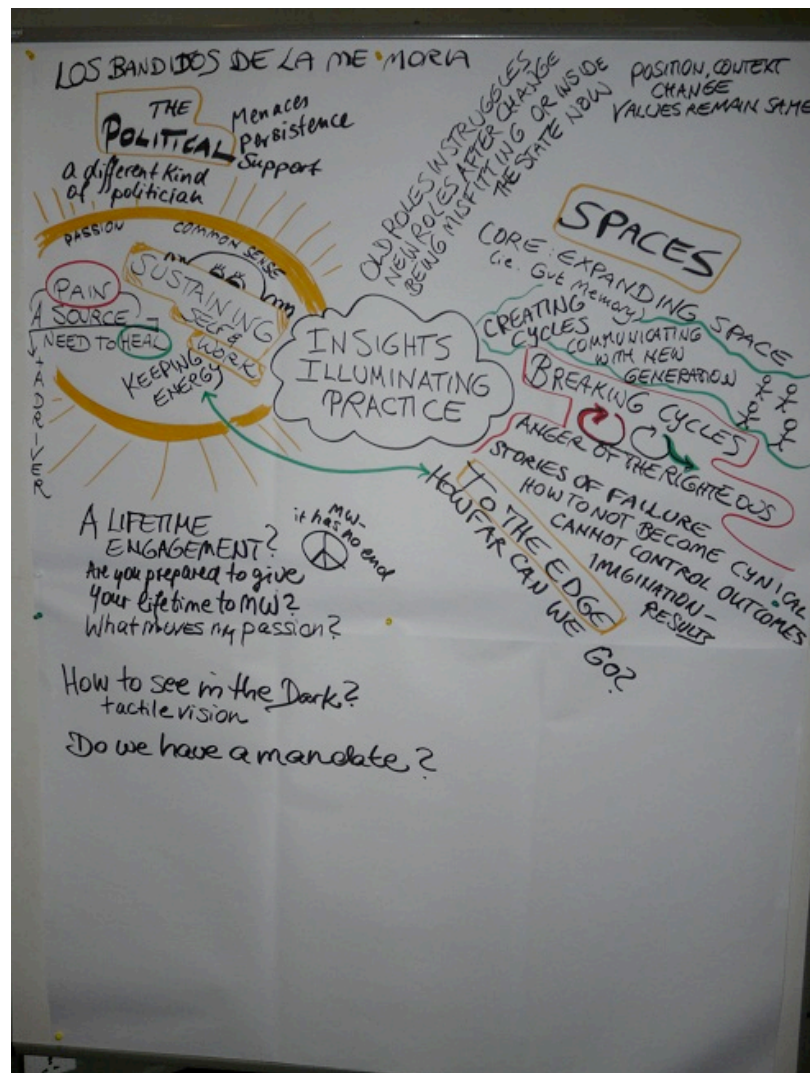 LOS BANDIDOS DE LA MEMORIA
THE
POLITICAL
Menaces
Persistence
Support
a different kind
of politician
PASSION
COMMON SENSE
SUSTAINING
SELF &
WORK
PAIN
A SOURCE
NEED TO HEAL
+ A DRIVER
KEEPING
ENERGY
INSIGHTS
ILLUMINATING
PRACTICE
OLD ROLES IN STRUGGLES
NEW ROLES AFTER CHANGE
BEING MISFITTING OR INSIDE
THE STATE NOW
POSITION, CONTEXT
CHANGE
VALUES REMAIN SAME
SPACES
CORE: EXPANDING SPACE
(i.e. Gut Memory)
CREATING
CYCLES
COMMUNICATING
WITH NEW
GENERATION
BREAKING CYCLES
ANGER OF THE RIGHTEOUS
STORIES OF FAILURE
HOW TO NOT BECOME CYNICAL
CANNOT CONTROL OUTCOMES
IMAGINATION-
RESULTS
TO THE EDGE
HOW FAR CAN WE GO?
A LIFETIME
ENGAGEMENT?
MW-
it has no end
Are you prepared to give
your lifetime to MW?
What moves my passion?
How to see in the Dark?
tactile vision
Do we have a mandate?